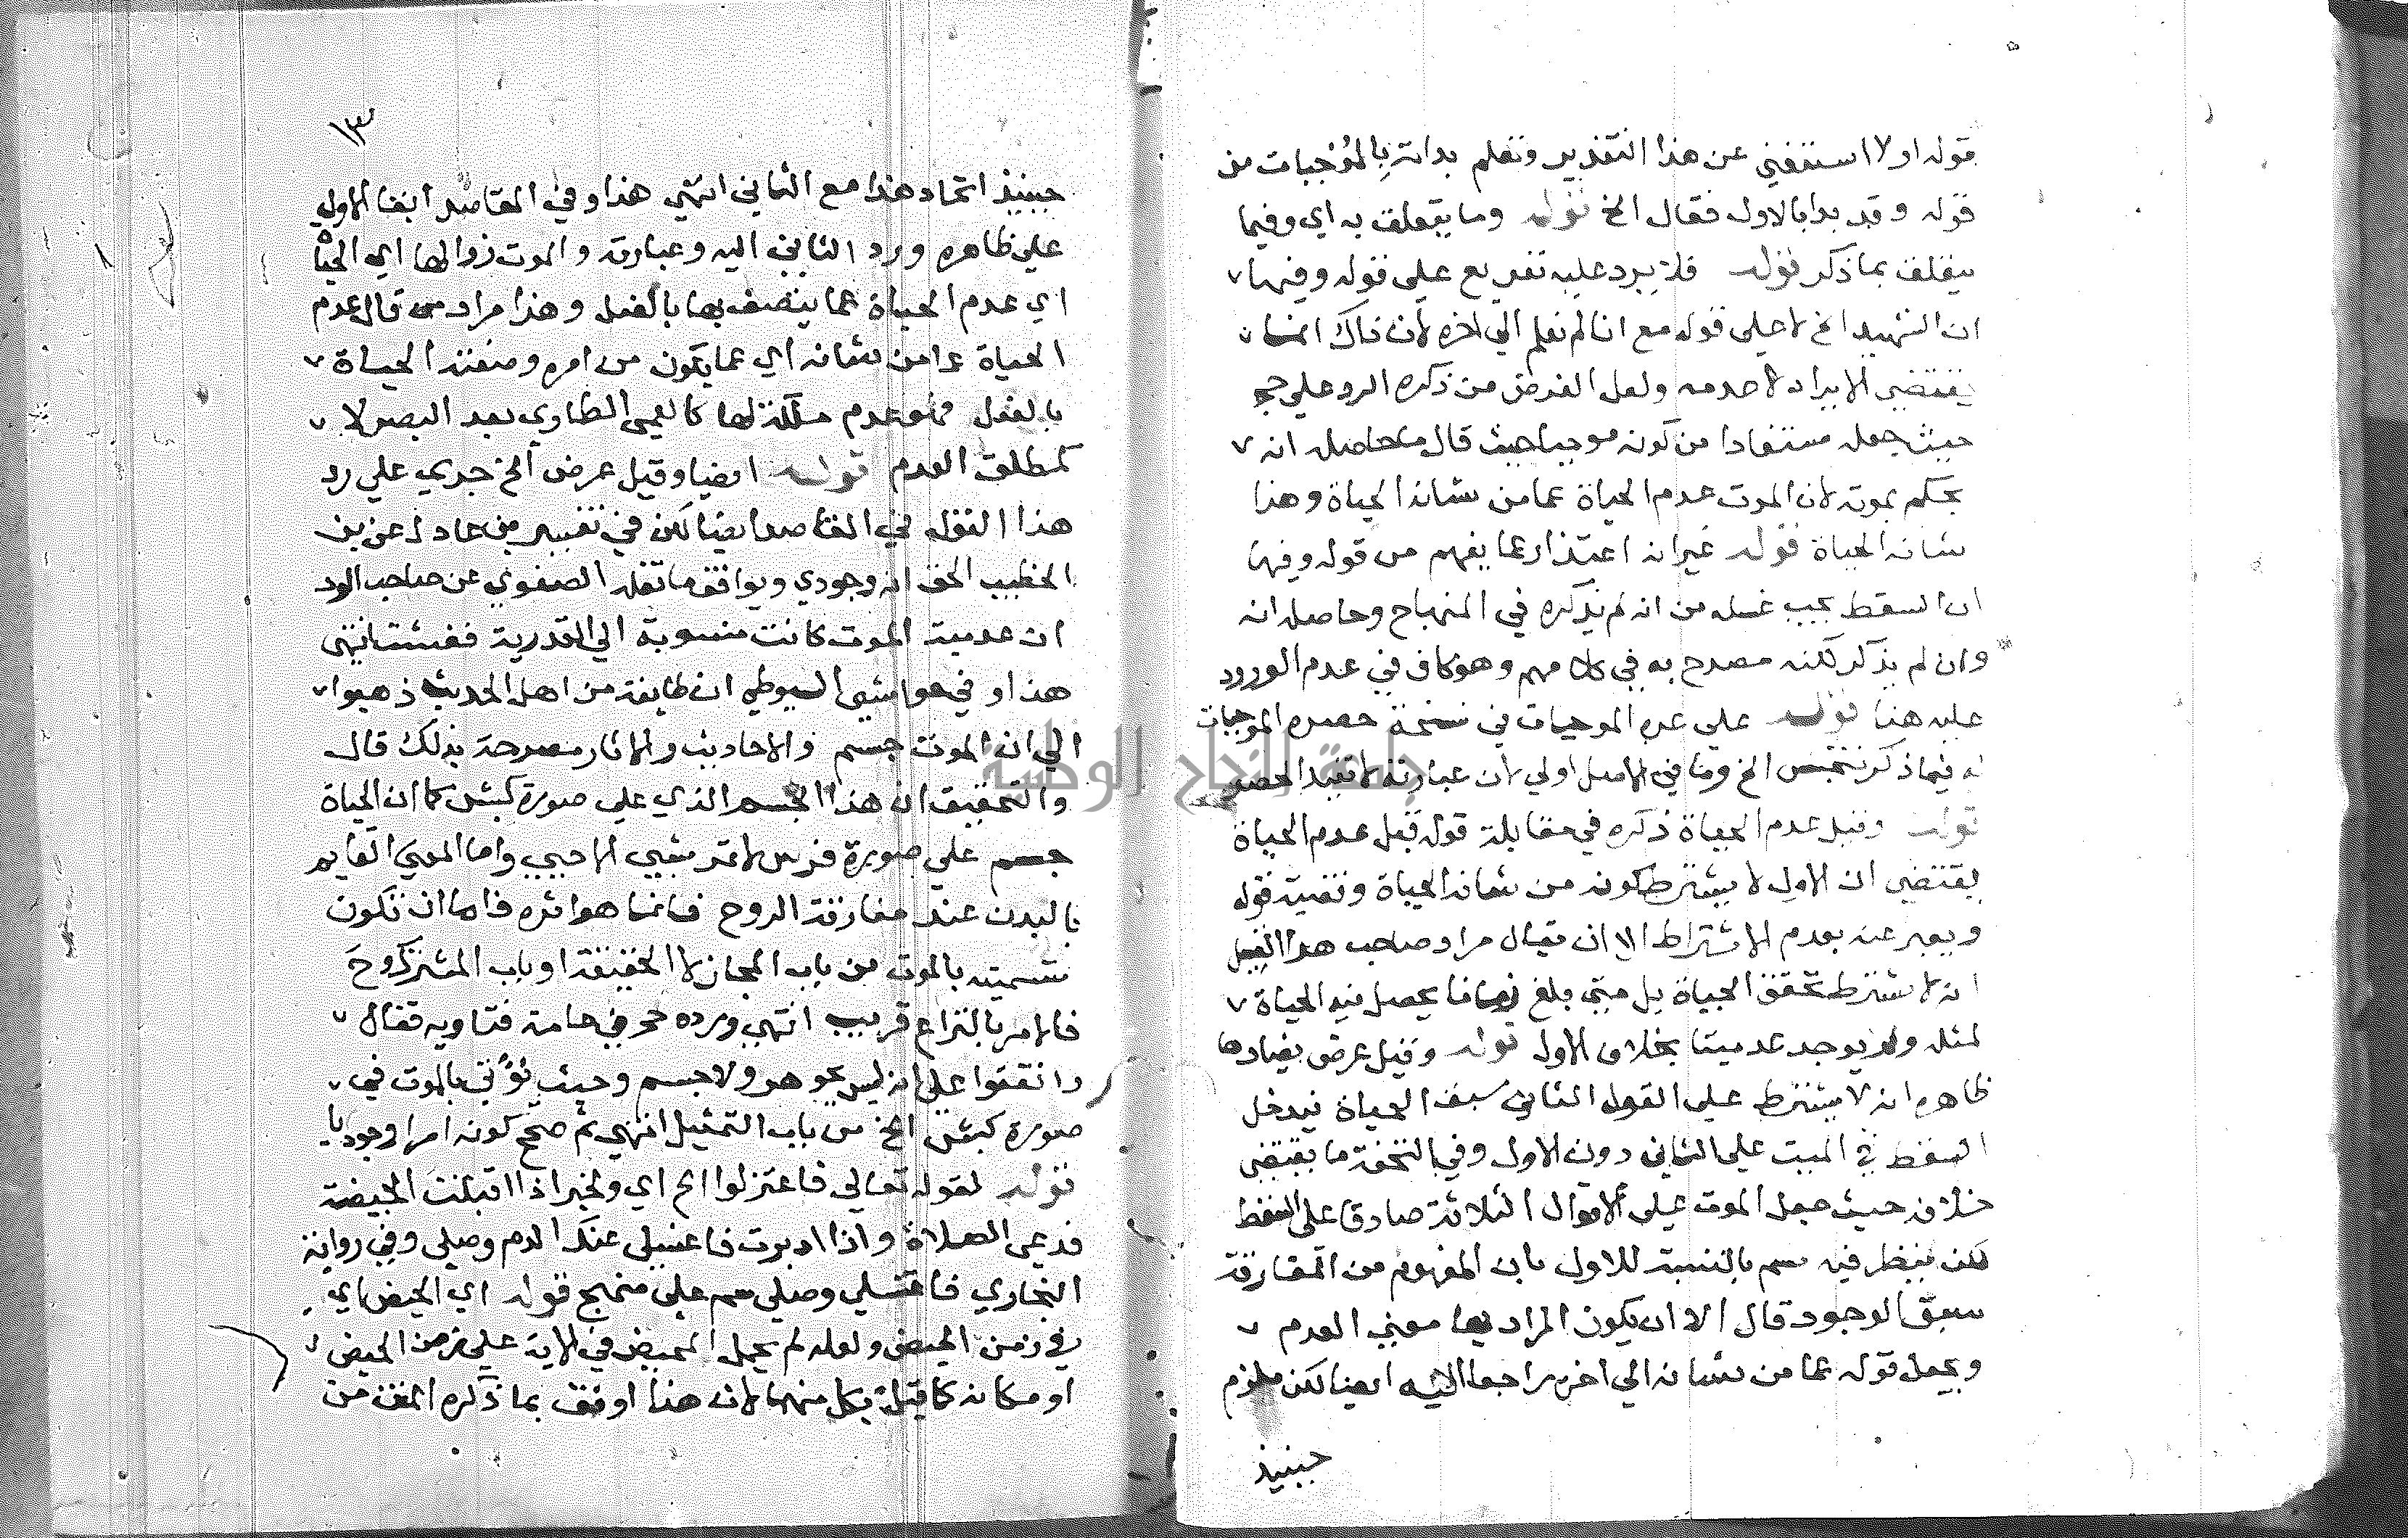 قوله اولا استغني عن هذا التقدير وتعلم بداته بالموجبات من
قوله وقد بدا بالاول فقال الخ قوله وما يتعلق به اي وفيما
يتعلق بما ذكر قوله فلا يرد عليه تفريع على قوله وفيها
ان الشهيد الخ لا على قوله مع انا لم نعلم الي اخره لان ذاك انما
يقتضي الايراد لا عدمه ولعل الغرض من ذكره الرد على حج
حيث جعله مستفادا من كونه موجبا حيث قال ما حاصله انه
يحكم بموته لان الموت عدم الحياة عما من شانه الحياة وهذا
شانه الحياة قوله غير انه اعتذار عما يفهم من قوله وفيها
ان السقط يجب غسله من انه لم يذكره في المنهاج وحاصله انه
وان لم يذكر لكنه مصرح به في كلامهم وهو كاف في عدم الورود
عليه هنا قوله على عده الموجبات في نسخة حصره الموجبات
له فيما ذكر الخ وما في الاصل اولي لان عبارته لا تفيد الحصر
قوله وقيل عدم الحياة ذكره في مقابلة قوله قبل عدم الحياة
يقتضي ان الاول لا يشترط كونه من شانه الحياة وقضية قوله
ويعبر عنه بعدم الاشتراط الا ان يقال مراد صاحب هذا القيل
انه لا يشترط تحقق الحياة بل متى بلغ زمانا يحصل فيه الحياة
لمثله ولم يوجد عد ميتا بخلاف الاول قوله وقيل عرض يضادها
ظاهره انه لا يشترط على القول الثاني سبق الحياة فيدخل
السقط في الميت على الثاني دون الاول وفي التحفة ما يقتضي
خلافه حيث جعل الموت على الاقوال الثلاثة صادقا على السقط
لكن ينظر فيه سم بالنسبة للاول بان المفهوم من المفارقة
سبق الوجود قال الا ان يكون المراد بها معنى العدم
ويجعل قوله عما من شانه الي اخره راجعا اليه ايضا لكن يلزم
حينيذ
١٣
حينيذ اتحاد هذا مع الثاني انتهي هذا وفي المقاصد ابقا الاول
على ظاهره ورد الثاني اليه وعبارته والموت زوالها اي الحياة
اي عدم الحياة عما يتصف بها بالفعل وهذا مراد من قال عدم
الحياة عما من شانه اي عما يكون من امره وصفته الحياة
بالفعل فهو عدم ملكة لها كالعمى الطاري بعد البصر لا
كمطلق العدم قوله ايضا وقيل عرض الخ جري علي رد
هذا القول في المقاصد ايضا لكن في تفسير بن عادل عن بن
الخطيب الحق انه وجودي ويوافق ما نقله الصفوي عن صاحب الود
ان عدمية الموت كانت منسوبة الي القدرية ففشت انتهى
هذا وفي حواشي السيوطي ان طايفة من اهل الحديث ذهبوا
الي ان الموت جسم والاحاديث والاثار مصرحة بذلك قال
والتحقيق ان هذا الجسم الذي على صورة كبش كما ان الحياة
جسم علي صورة فرس لا تمر بشي الا حيي واما المعني القايم
بالبدن عند مفارقة الروح فانما هو اثره فاما ان تكون
تسميته بالموت من باب المجاز لا الحقيقة او باب المشترك وح
فالامر بالنزاع قريب انتهي ورده حج في عامة فتاويه فقال
واتفقوا علي انه ليس بجوهر ولا جسم وحيث يؤتي بالموت في
صورة كبش الخ من باب التمثيل انتهي ثم صح كونه امرا وجوديا
قوله لقوله تعالي فاعتزلوا الخ اي ولخبر اذا اقبلت الحيضة
فدعي الصلاة واذا ادبرت فاغسلي عنك الدم وصلي وفي رواية
البخاري فاغتسلي وصلي سم على منهج قوله اي الحيض اي
في زمن الحيض ولعله لم يحمل المحيض في الاية على زمن الحيض
او مكانه كما قيل بكل منهما لان هذا اوفق بما ذكره المص من